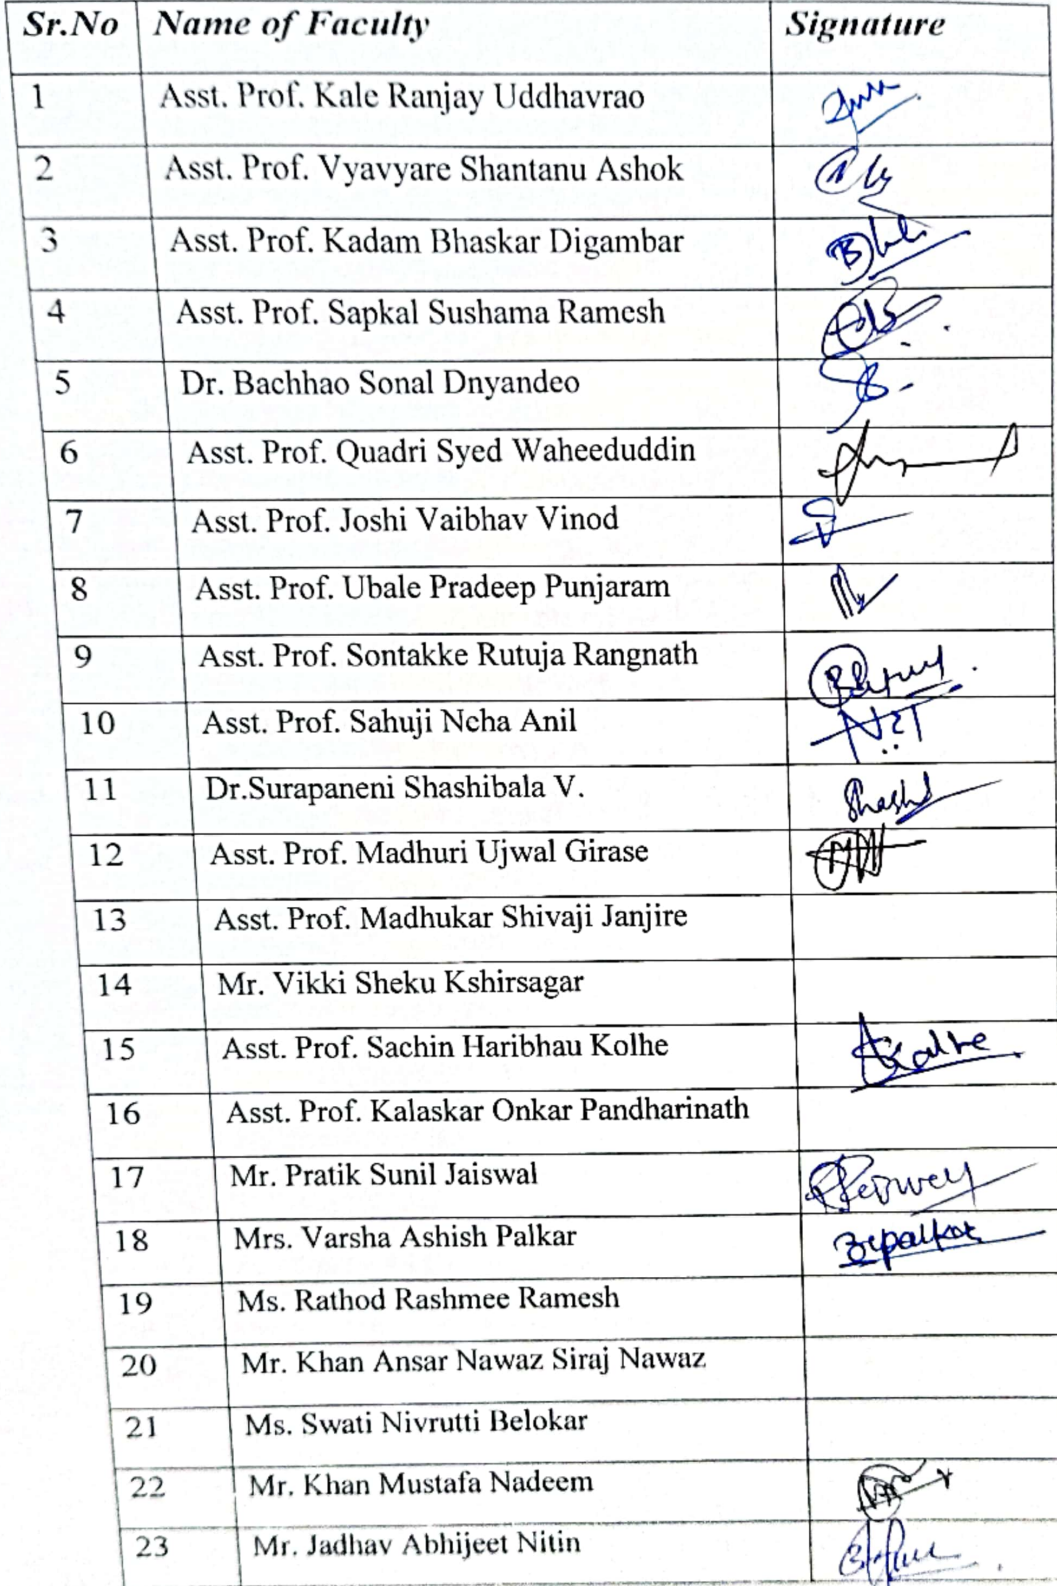 Sr.No Name of Faculty Signature
1 Asst. Prof. Kale Ranjay Uddhavrao
2 Asst. Prof. Vyavyare Shantanu Ashok
3 Asst. Prof. Kadam Bhaskar Digambar
4 Asst. Prof. Sapkal Sushama Ramesh
5 Dr. Bachhao Sonal Dnyandeo
6 Asst. Prof. Quadri Syed Waheeduddin
7 Asst. Prof. Joshi Vaibhav Vinod
8 Asst. Prof. Ubale Pradeep Punjaram
9 Asst. Prof. Sontakke Rutuja Rangnath
10 Asst. Prof. Sahuji Neha Anil
11 Dr.Surapaneni Shashibala V.
12 Asst. Prof. Madhuri Ujwal Girase
13 Asst. Prof. Madhukar Shivaji Janjire
14 Mr. Vikki Sheku Kshirsagar
15 Asst. Prof. Sachin Haribhau Kolhe
16 Asst. Prof. Kalaskar Onkar Pandharinath
17 Mr. Pratik Sunil Jaiswal
18 Mrs. Varsha Ashish Palkar
19 Ms. Rathod Rashmee Ramesh
20 Mr. Khan Ansar Nawaz Siraj Nawaz
21 Ms. Swati Nivrutti Belokar
22 Mr. Khan Mustafa Nadeem
23 Mr. Jadhav Abhijeet Nitin